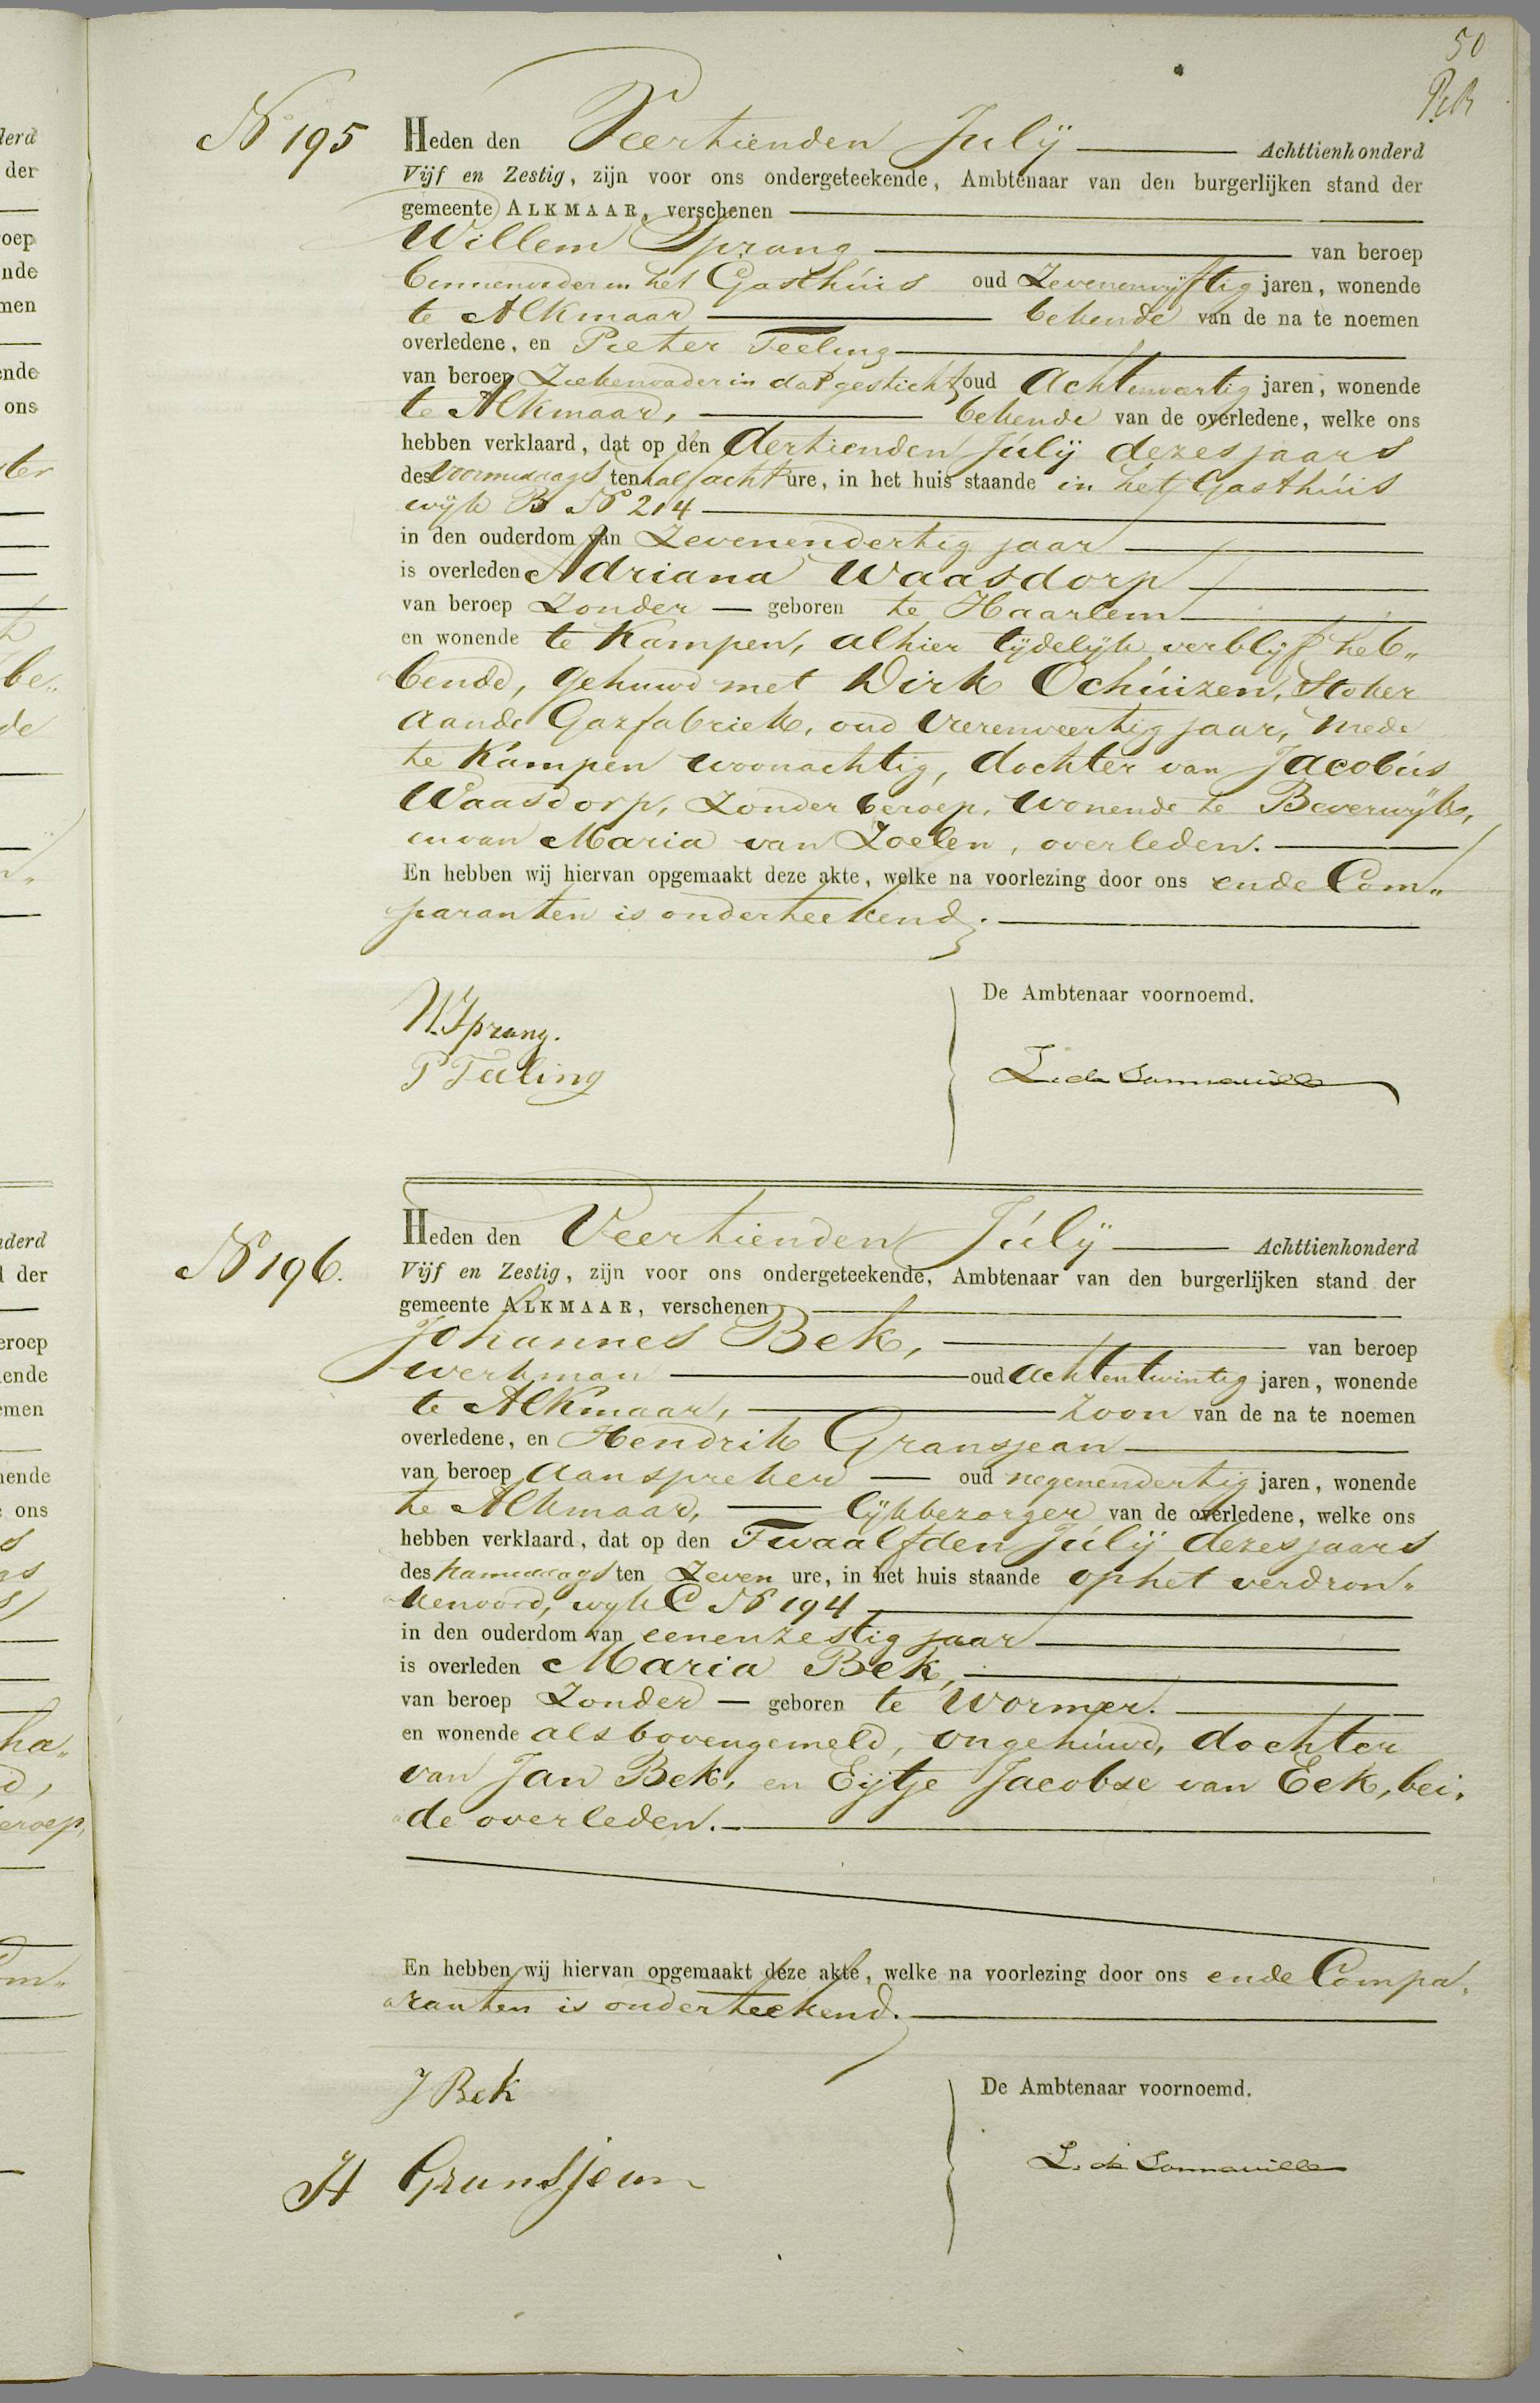 50
N° 195 Heden den Veertienden Julÿ Achttienhonderd
Vijf en Zestig, zijn voor ons ondergeteekende, Ambtenaar van den burgerlijken stand der
gemeente ALKMAAR, verschenen
Willem Sprang van beroep
binnenvader in het Gasthuis oud Zevenenvijftig jaren, wonende
te Alkmaar bekende van de na te noemen
overledene, en Pieter Teeling
van beroep Ziekenvader in dat gesticht oud Achtenveertig jaren, wonende
te Alkmaar, bekende van de overledene, welke ons
hebben verklaard, dat op den dertienden Julÿ dezes jaars
des voormiddags ten half acht ure, in het huis staande in het Gasthuis
wyk B N° 214
in den ouderdom van Zevenendertig jaar
is overleden Adriana Waasdorp
van beroep Zonder geboren te Haarlem
en wonende te Kampen, alhier tijdelijk verblijf heb„
bende, gehuwd met Dirk Ochuizen, Stoker
aan de Gazfabriek, oud vierenveertig jaar, mede
te Kampen woonachtig, dochter van Jacobus
Waasdorp, Zonder beroep, wonende te Beverwijk,
en van Maria van Zoelen, overleden.
En hebben wij hiervan opgemaakt deze akte, welke na voorlezing door ons en de Com„
paranten is onderteekend.
De Ambtenaar voornoemd.
W. Sprang.
P Teeling
L. de Sonnaville
N° 196. Heden den Veertienden Julÿ Achttienhonderd
Vijf en Zestig, zijn voor ons ondergeteekende, Ambtenaar van den burgerlijken stand der
gemeente ALKMAAR, verschenen
Johannes Bek, van beroep
werkman oud achtentwintig jaren, wonende
te Alkmaar, Zoon van de na te noemen
overledene, en Hendrik Gransjean
van beroep Aanspreker oud negenendertig jaren, wonende
te Alkmaar, lijkbezorger van de overledene, welke ons
hebben verklaard, dat op den Twaalfden Julÿ dezes jaars
des namiddags ten Zeven ure, in het huis staande op het verdron„
kenoord, wyk C N° 194
in den ouderdom van eenenzestig jaar
is overleden Maria Bek,
van beroep Zonder geboren te Wormer.
en wonende als bovengemeld, ongehuwd, dochter
van Jan Bek, en Eijtje Jacobse van Eek, bei„
de overleden.
En hebben wij hiervan opgemaakt deze akte, welke na voorlezing door ons en de Compa„
ranten is onderteekend.
De Ambtenaar voornoemd.
J Bek
H Gransjean
L. de Sonnaville